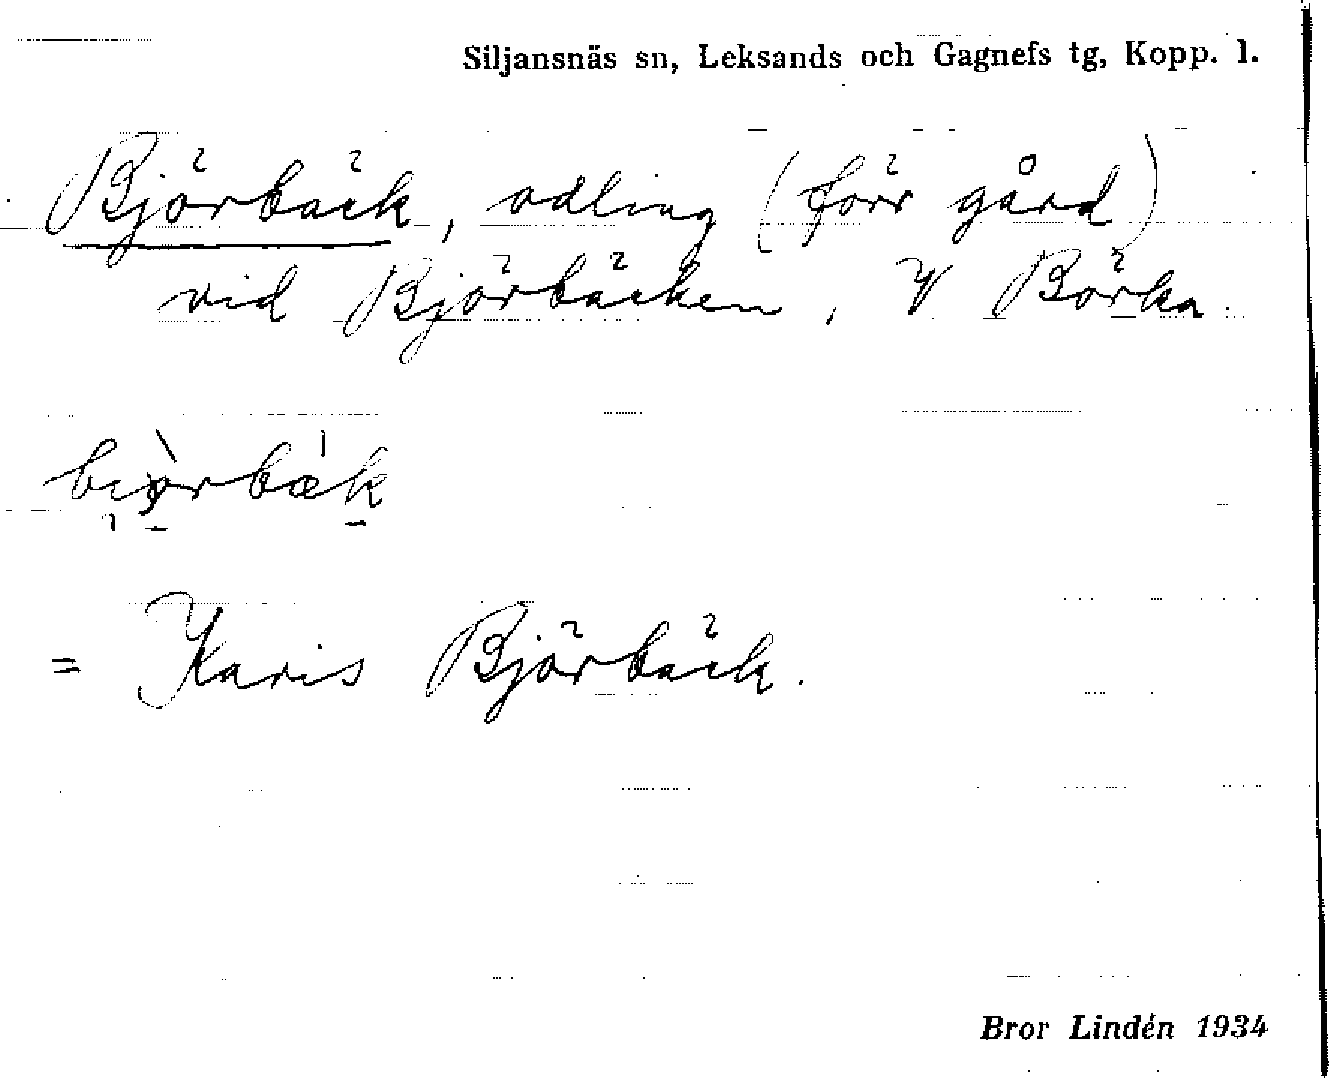 Siljansnäs sn, Leksands och Gagnefs tg, Kopp. l.
Björbäck, odling (förr gård)
vid Björbäcken, V Börka.
= Karis Björbäck.
Bror Lindén 1934